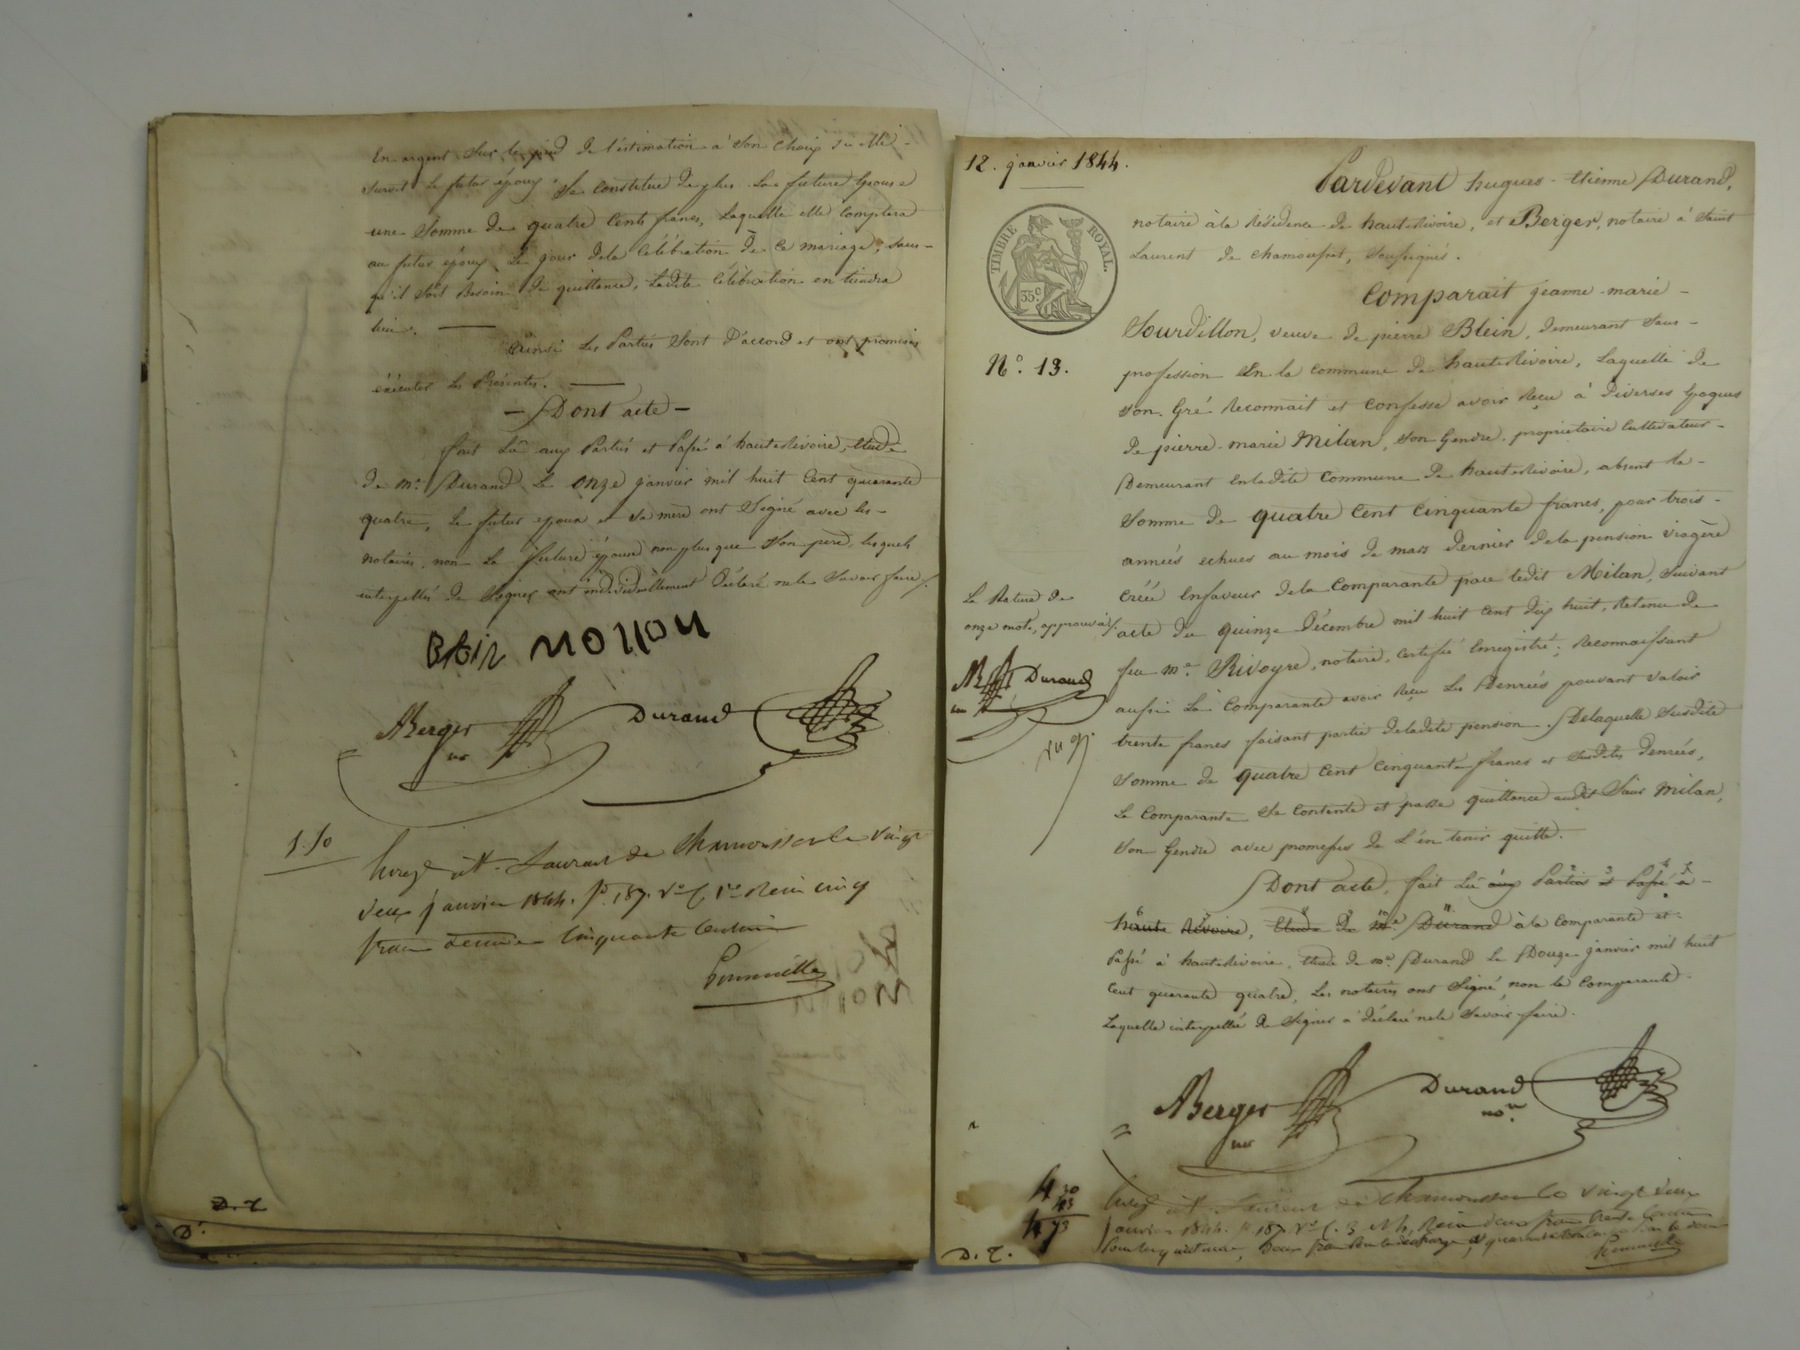 En argent sur le pied de l'estimation à son choix si elle
survit le futur époux. Se constitue de plus la future Epouse
une somme de quatre cents francs, laquelle elle comptera
au futur époux le jour de la célébration de ce mariage, sans
qu'il soit besoin de quittance, ladite célébration en tiendra
lieu.
Ainsi les Parties sont d'accord et ont promis
exécuter les Présentes.
- Dont acte -
fait Lû aux Parties et Passé à haute Rivoire, Etude
de me. Durand le onze janvier mil huit cent quarante
quatre, le futur époux et sa mère ont Signé avec les
notaires, non la future épouse non plus que son père, lesquels
interpellés de Signer ont individuellement déclaré ne le savoir faire.
Berger Durand
1.10
janvier 1844. fo. 187. Vo C. 1re Reçu cinq
francs cinquante Centimes
D. T.
D.
12. janvier 1844.
Pardevant hugues-Etienne Durand,
notaire à la Résidence de haute Rivoire, et Berger, notaire à Saint
Laurent de chamousset, Soussignés.
TIMBRE ROYAL.
35c.
Comparait jeanne marie
Sourdillon, veuve de pierre Blein, demeurant Sans
No. 13.
profession En la Commune de haute Rivoire, Laquelle de
son Gré Reconnait et Confesse avoir Reçu à diverses Epoques
de pierre marie Milan, son Gendre, propriétaire Cultivateur
Demeurant En ladite Commune de haute Rivoire, absent la
somme de quatre cent cinquante francs, pour trois
années echues au mois de mars dernier de la pension viagère
créée En faveur de la Comparante par ledit Milan, Suivant
acte du quinze Décembre mil huit cent dix huit, Retenu de
La Rature de
onze mots, approuvée.
Durand
feu me. Rivoyre, notaire, certifié Enregistré; Reconnaissant
aussi la Comparante avoir Reçu les Denrées pouvant valoir
trente francs faisant partie de ladite pension. De laquelle Susdite
somme de quatre cent cinquante francs et susdites denrées,
la Comparante se Contente et passe quittance audit Sieur Milan,
son Gendre avec promesses de l'en tenir quitte.
Dont acte, fait Lû aux Parties et Passé à
haute Rivoire, Etude de me Durand à la Comparante et
Passé à haute Rivoire, Etude de me. Durand le Douze janvier mil huit
Cent quarante quatre, les notaires ont Signé, non la Comparante
Laquelle interpellée de Signer a déclaré ne le Savoir faire.
Berger Durand
4 30
43
4 73
Enregé à St. Laurent de Chamousset le vingt deux
janvier 1844. fo 187. Vo C. 3 et 4, Reçu deux francs trente Centimes
D. T.